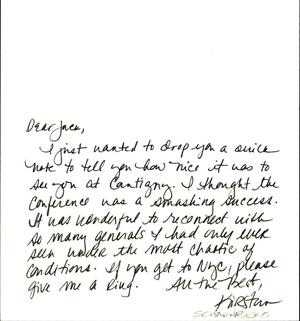 Dear Jack,
I just wanted to drop you a quick
note to tell you how nice it was to
see you at Cantigny. I thought the
Conference was a smashing success.
It was wonderful to reconnect with
so many generals I had only ever
seen under the most chaotic of
conditions. If you get to NYC, please
give me a ring. All the best,
Kirsten